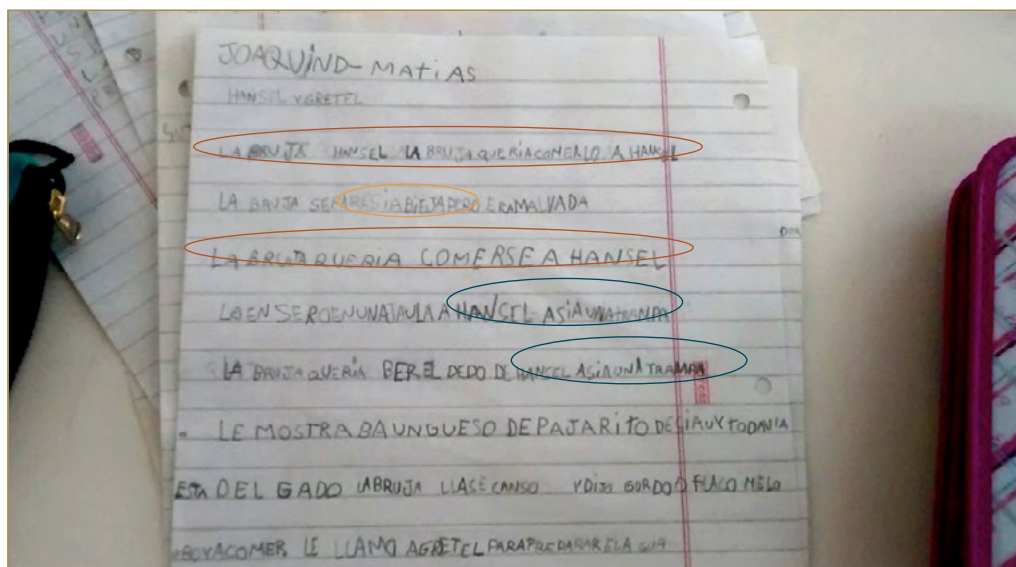 JOAQUIND- MATIAS
HANSEL Y GRETEL
LA BRUJA HANSEL LA BRUJA QUERIA CONERLO A HANSEL
LA BRUJA SEPARESIA BIEJA PERO ERA MALVADA
LA BRUJA QUERIA COMERSE A HANSEL
LO EN SERO EN UNA JAULA A HANSEL ASIA UNA TRAMPA
LA BRUJA QUERIA BER EL DEDO DE HANCEL ASIA UNA TRAMPA
LE MOSTRABA UN GUESO DE PAJARITO DESIA UY TODAVIA
ESTA DEL GADO LA BRUJA LLASE CANSO Y DIJO GORDO O FLACO MELO
BOY A COMER LE LLAMO A GRETEL PARA PREPARAR EL AGUA